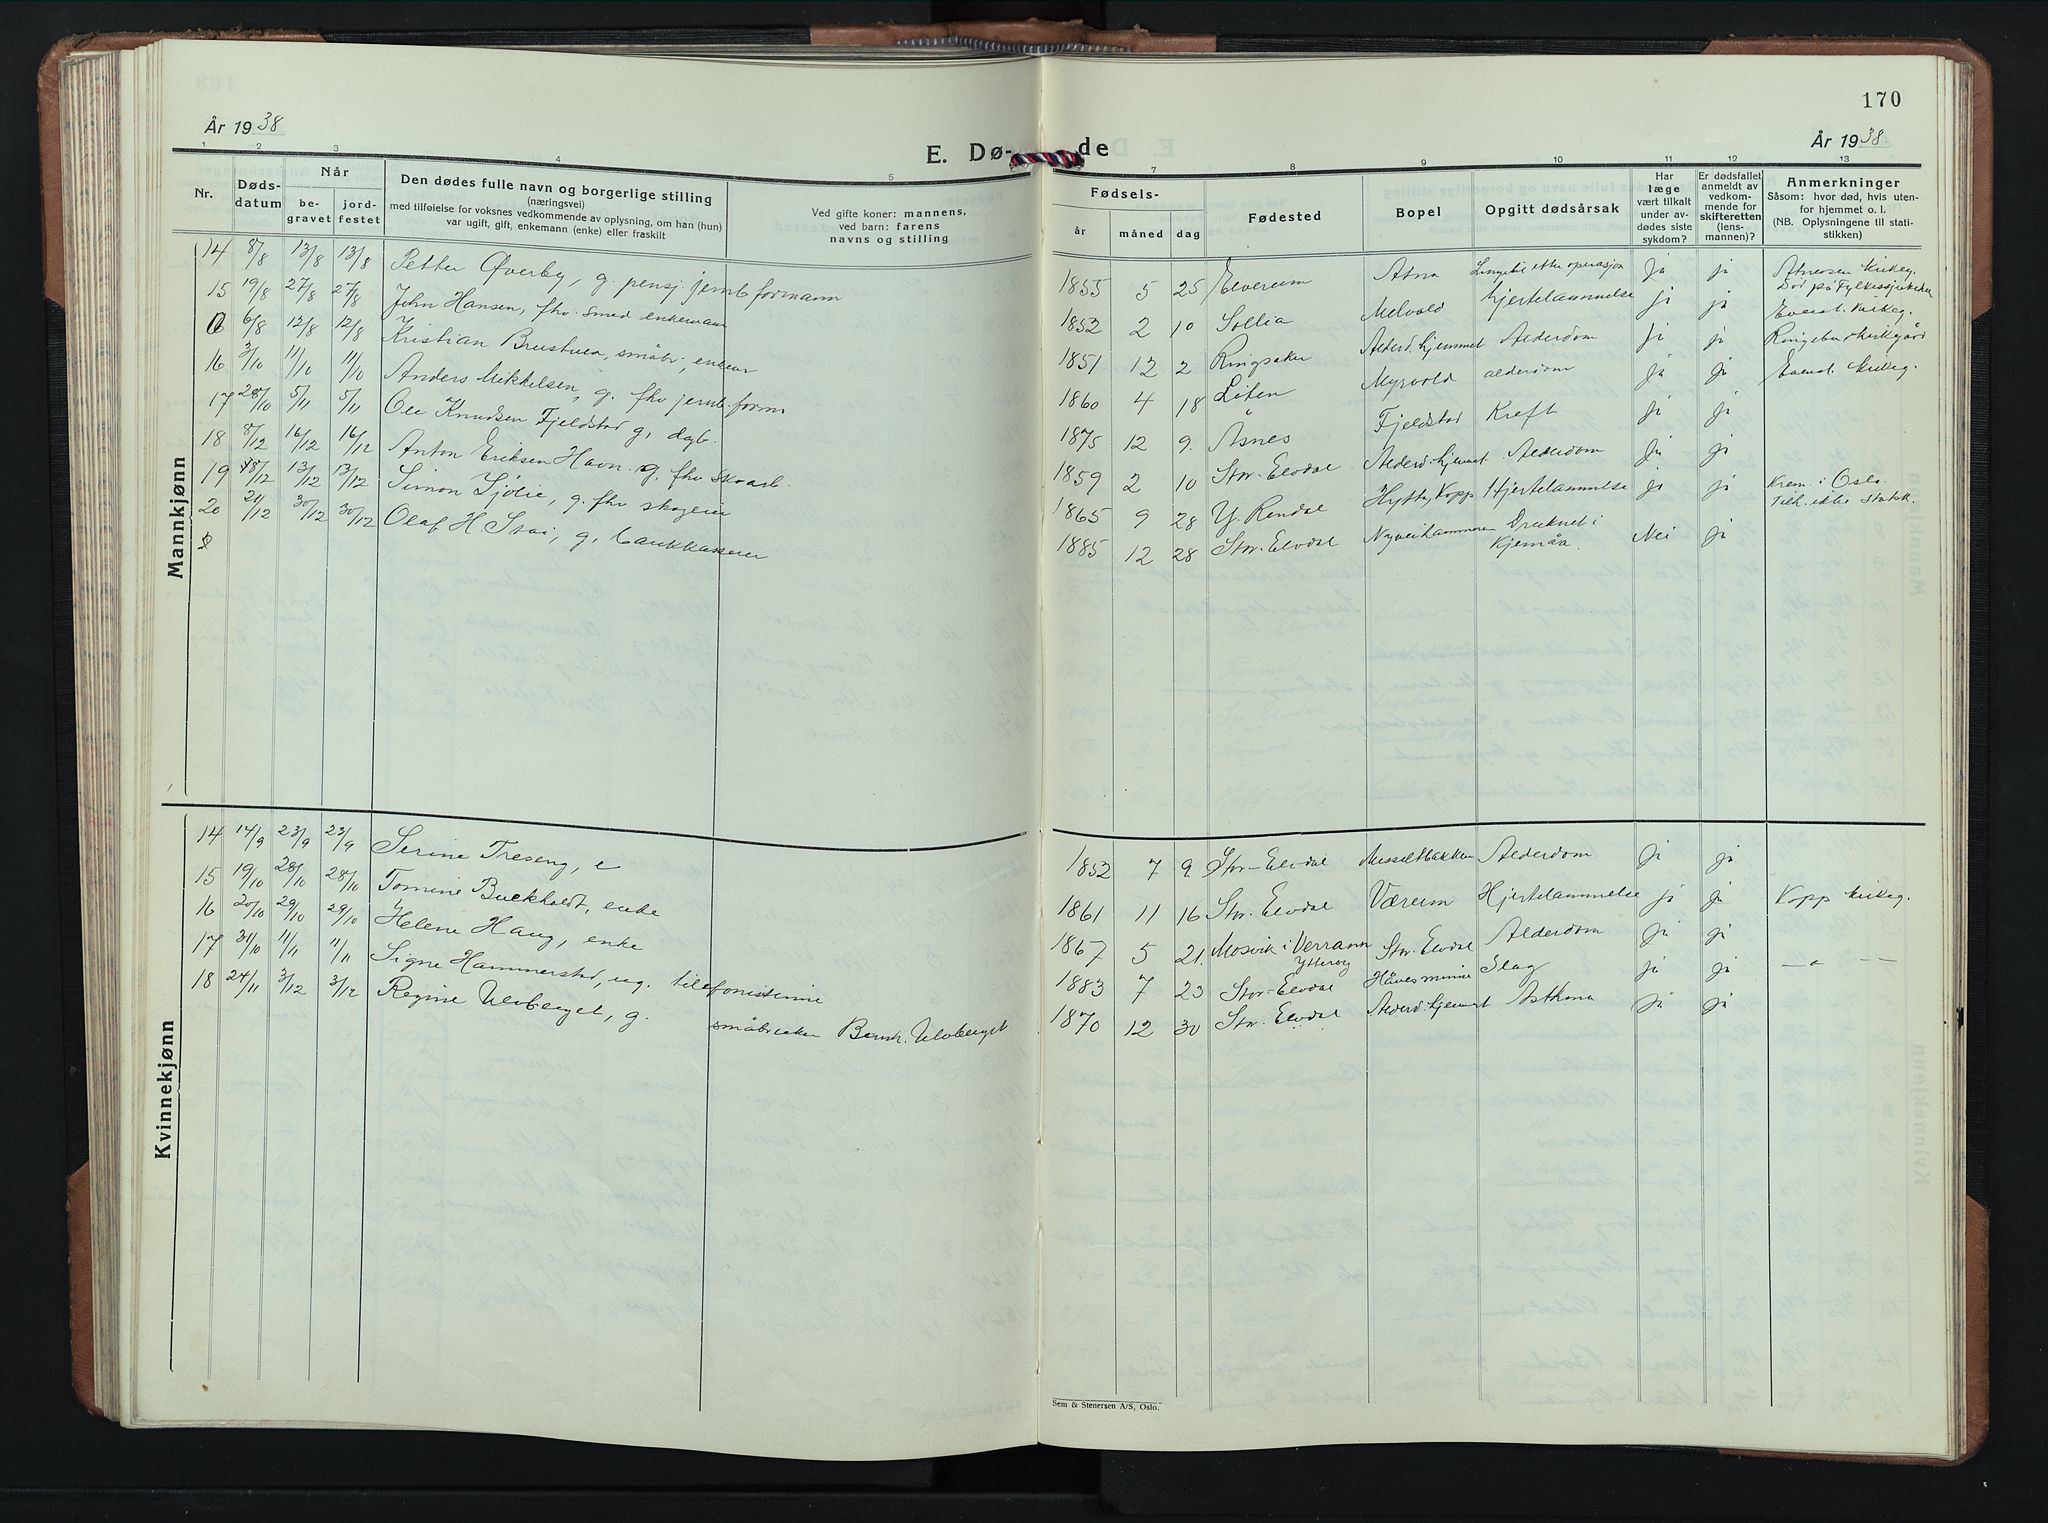 170
År 1938
År 1938.
E. Dø-
de
1 2 3 4 5
7 8 9 10 11 12 13
Nr.
Døds-
datum
Når
be-
gravet
jord-
festet
Den dødes fulle navn og borgerlige stilling
(næringsvei)
med tilføielse for voksnes vedkommende av oplysning, om han (hun)
var ugift, gift, enkemann (enke) eller fraskilt
Ved gifte koner: mannens,
ved barn: farens
navns og stilling
Fødsels-
år måned dag
Fødested
Bopel
Opgitt dødsårsak
Har
læge
vært tilkalt
under av-
dødes siste
sykdom?
Er dødsfallet
anmeldt av
vedkom-
mende for
skifteretten
(lens-
mannen)?
Anmerkninger
Såsom: hvor død, hvis uten-
for hjemmet o. l.
(NB. Oplysningene til stati-
stikken)
Mannkjønn
14 8/8 13/8 13/8 Petter Øverby, g. pensj. jernb.formann 1855 5 25 Elverum Atna etter operasjon ja ja Atneosen kirkeg.
Død på Fylkessjukehus
15 19/8 27/8 27/8 John Hansen, fhv. smed enkemann 1852 2 10 Sollia Melvold Hjertelammelse ja ja Evenst. kirkeg.
6/8 12/8 12/8 Kristian Brustuen, småbr., enkem 1851 12 2 Ringsaker Alderd.hjemmet Alderdom ja ja Ringebu kirkegård
16 3/10 11/10 11/10 Anders Mikkelsen, g. fhv jernb.form 1860 4 18 Löten Myrvold alderdom ja ja Evenst. kirkeg.
17 28/10 5/11 5/11 Ole Knudsen Fjeldstad g, dagb. 1875 12 9. Åsnes Fjeldstad Kreft ja ja
18 8/12 16/12 16/12 Anton Eriksen Havn g, fhv skoarb. 1859 2 10 Stor-Elvdal Alderd.hjemmet Alderdom ja ja
19 8/12 13/12 13/12 Simon Sjølie, g. fhv skogeier 1865 9 28 Y. Rendal Hytta, Kopp Hjertelammelse ja ja Krem. i Oslo
Tilh. ikke statsk.
20 21/12 30/12 30/12 Olaf H. Stai, g, bankkasserer 1885 12 28 Stor-Elvdal Nyveihammeren Druknet i
Kjemåa. Nei ja
Kvinnekjønn
14 14/9 23/9 23/9 Serine Treseng, e 1852 7 9 Stor-Elvdal Messeltbakken Alderdom ja ja
15 19/10 28/10 28/10 Tomine Buckholdt, enke 1861 11 16 Stor-Elvdal Værum Hjertelammelse ja ja Kopp kirkeg.
16 20/10 29/10 29/10 Helene Haug, enke 1867 5 21. Mosvik i Verrann
Ytterøy Stor-Elvdal Alderdom ja ja
17 31/10 11/11 11/11 Signe Hammerstad, ug. telefonistinne 1883 7 23 Stor-Elvdal Håvesminne Slag ja ja — " —
18 24/11 3/12 3/12 Regine Ulvberget, g. småbruker Bernh. Ulvberget 1870 12 30 Stor-Elvdal Alderd.hjemmet Asthma ja ja
Sem & Stenersen A/S, Oslo.